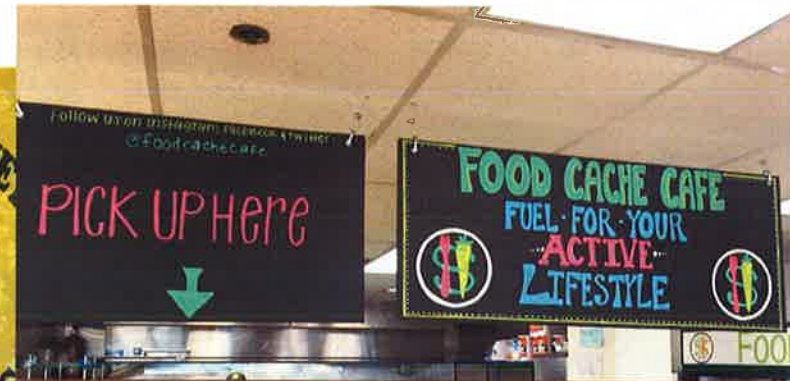 Follow us on Instagram, Facebook & Twitter
@foodcachecafe
PICK UP Here
FOOD CACHE CAFE
FUEL·FOR·YOUR
·ACTIVE·
LIFESTYLE
FOO